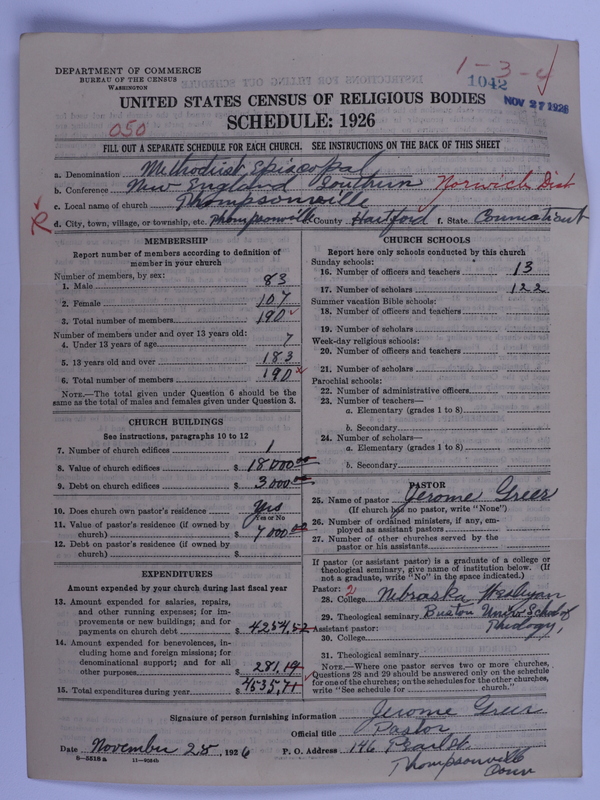 DEPARTMENT OF COMMERCE
BUREAU OF THE CENSUS
WASHINGTON
1-3-4
1042
NOV 27 1926
UNITED STATES CENSUS OF RELIGIOUS BODIES
SCHEDULE: 1926
050
FILL OUT A SEPARATE SCHEDULE FOR EACH CHURCH. SEE INSTRUCTIONS ON THE BACK OF THIS SHEET
a. Denomination Methodist Episcopal
b. Conference New England Southern Norwich Dist
c. Local name of church Thompsonville
R
d. City, town, village, or township, etc. Thompsonville e. County Hartford f. State Connecticut
MEMBERSHIP
Report number of members according to definition of
member in your church
Number of members, by sex:
1. Male 83
2. Female 107
3. Total number of members 190
Number of members under and over 13 years old:
4. Under 13 years of age 7
5. 13 years old and over 183
6. Total number of members 190
NOTE.—The total given under Question 6 should be the
same as the total of males and females given under Question 3.
CHURCH BUILDINGS
See instructions, paragraphs 10 to 12
7. Number of church edifices 1
8. Value of church edifices $ 18000.00
9. Debt on church edifices $ 3000.00
10. Does church own pastor's residence Yes
Yes or No
11. Value of pastor's residence (if owned by
church) $ 7000.00
12. Debt on pastor's residence (if owned by
church) $
EXPENDITURES
Amount expended by your church during last fiscal year
13. Amount expended for salaries, repairs,
and other running expenses; for im-
provements or new buildings; and for
payments on church debt $ 4254.52
14. Amount expended for benevolences, in-
cluding home and foreign missions; for
denominational support; and for all
other purposes $ 281.19
15. Total expenditures during year $ 4535.71
CHURCH SCHOOLS
Report here only schools conducted by this church
Sunday schools:
16. Number of officers and teachers 13
17. Number of scholars 122
Summer vacation Bible schools:
18. Number of officers and teachers
19. Number of scholars
Week-day religious schools:
20. Number of officers and teachers
21. Number of scholars
Parochial schools:
22. Number of administrative officers
23. Number of teachers—
a. Elementary (grades 1 to 8)
b. Secondary
24. Number of scholars—
a. Elementary (grades 1 to 8)
b. Secondary
PASTOR
25. Name of pastor Jerome Greer
(If church has no pastor, write "None")
26. Number of ordained ministers, if any, em-
ployed as assistant pastors
27. Number of other churches served by the
pastor or his assistants
If pastor (or assistant pastor) is a graduate of a college or
theological seminary, give name of institution below. (If
not a graduate, write "No" in the space indicated.)
Pastor: 2
28. College Nebraska Wesleyan
29. Theological seminary Boston Univ. School of
Theology,
Assistant pastor:
30. College
31. Theological seminary
NOTE.—Where one pastor serves two or more churches,
Questions 28 and 29 should be answered only on the schedule
for one of the churches; on the schedules for the other churches,
write "See schedule for church."
Signature of person furnishing information Jerome Greer
Official title Pastor
Date November 25, 1926 P. O. Address 146 Pearl St.
Thompsonville
Conn
8—5518 a 11—9304b